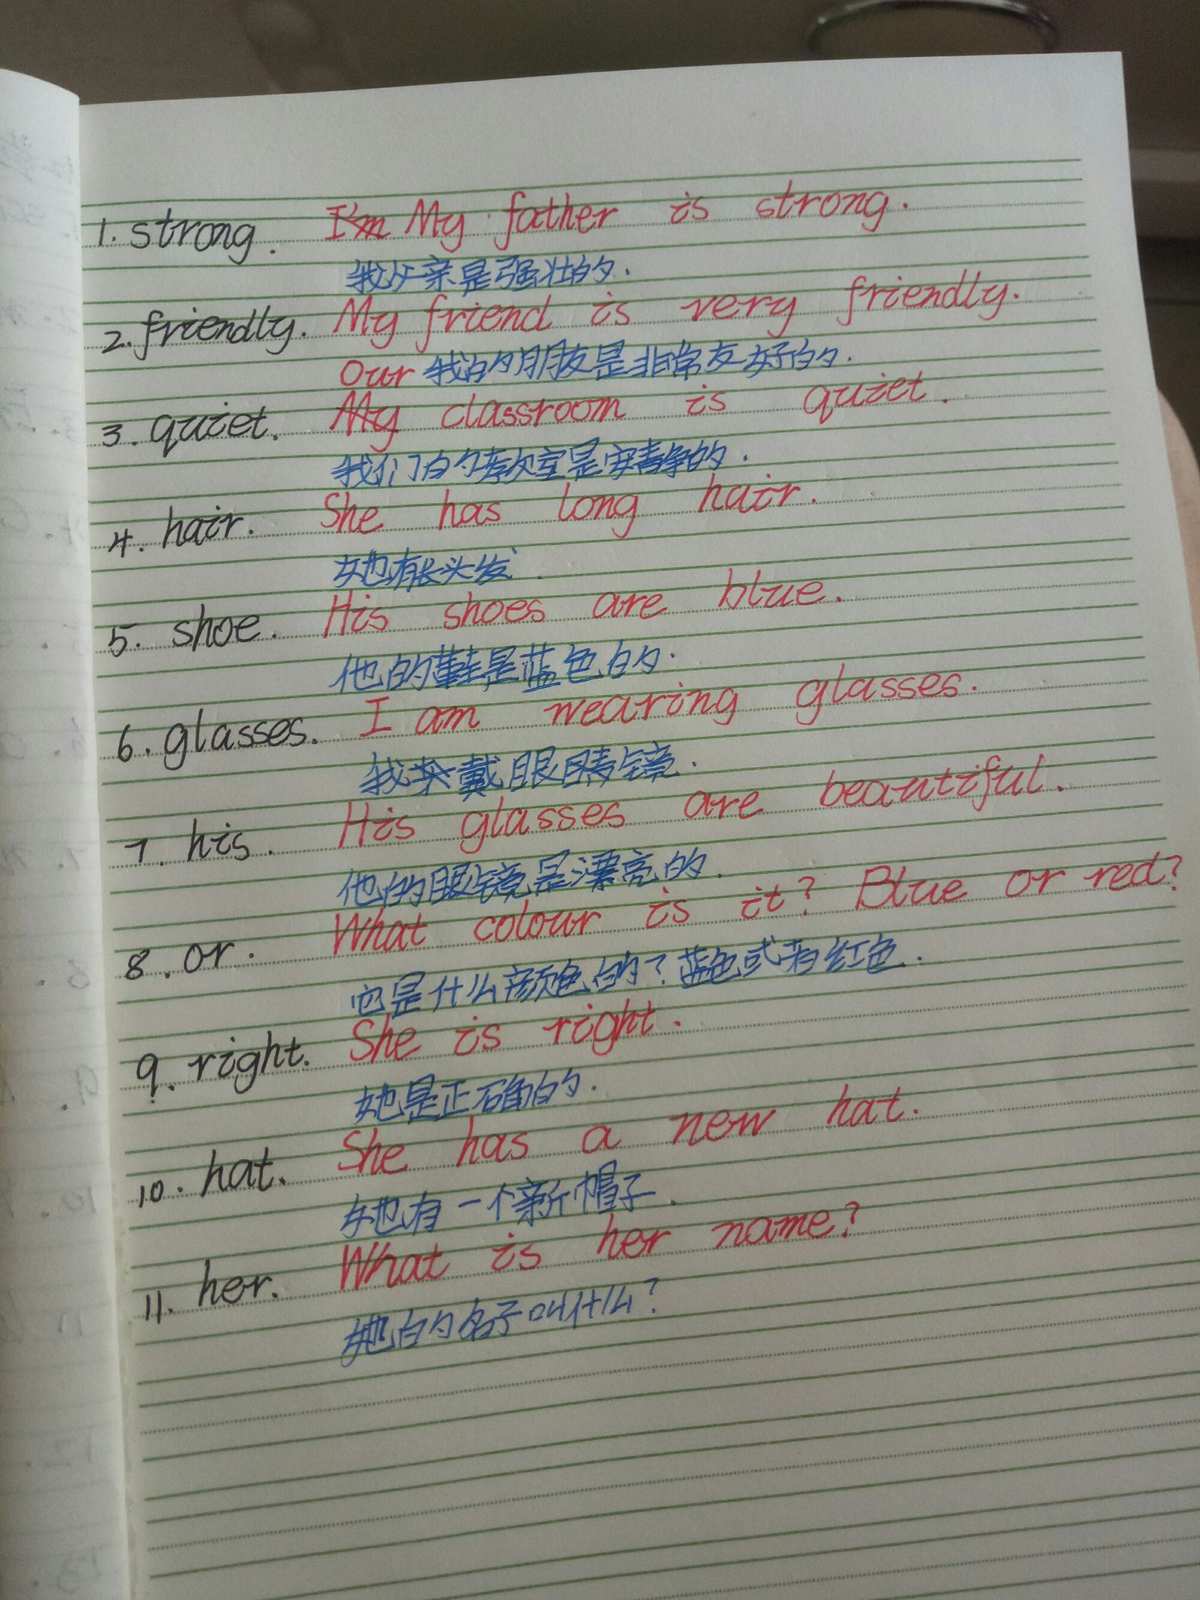 1. strong. My father is strong.
我父亲是强壮的.
2. friendly. My friend is very friendly.
我的朋友是非常友好的.
3. quiet. Our classroom is quiet.
我们的教室是安静的.
4. hair. She has long hair.
她有长头发.
5. shoe. His shoes are blue.
他的鞋是蓝色的.
6. glasses. I am wearing glasses.
我戴眼睛镜.
7. his. His glasses are beautiful.
他的眼镜是漂亮的.
8. or. What colour is it? Blue or red?
它是什么颜色的?蓝色或者红色.
9. right. She is right.
她是正确的.
10. hat. She has a new hat.
她有一个新帽子.
11. her. What is her name?
她的名子叫什么?